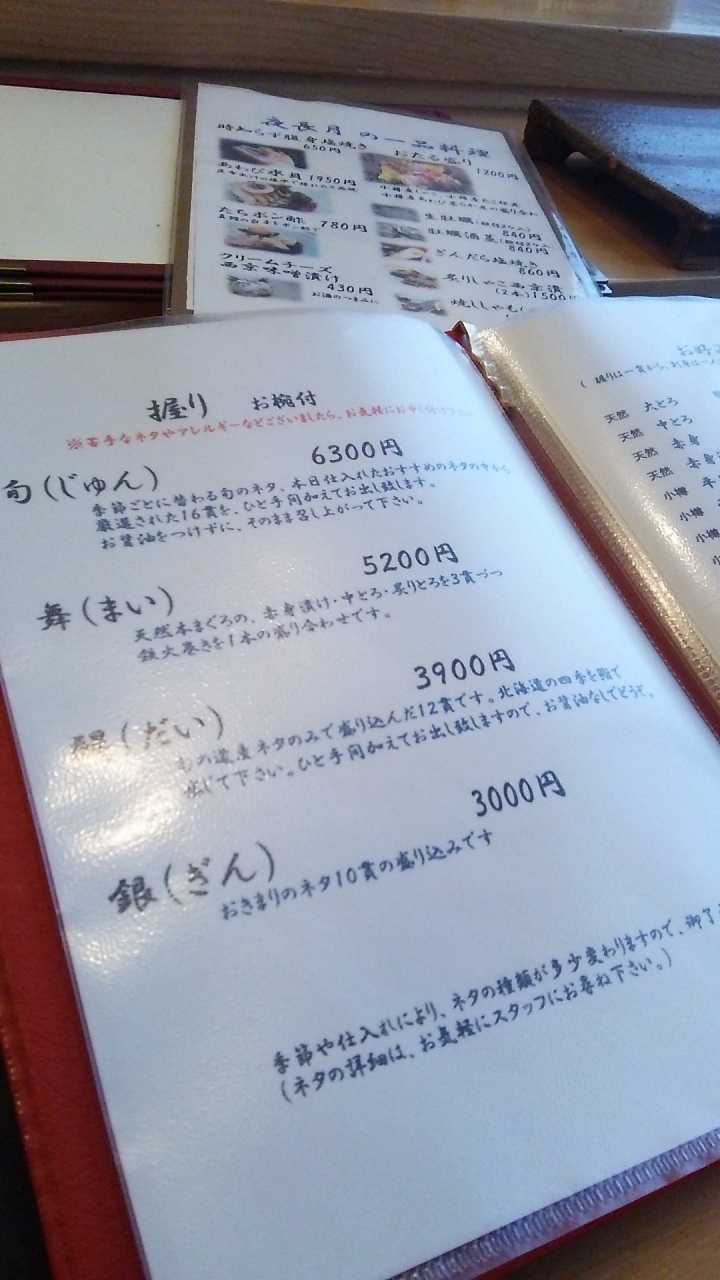 夜長月の一品料理
時知らず腹身塩焼き
650円
おたる盛り
1200円
あわび水貝 1950円
たちポン酢 780円
生牡蠣
840円
牡蠣酒蒸
840円
ぎんだら塩焼き
860円
クリームチーズ
西京味噌漬け
430円
お酒のつまみに
炙りしゃこ西京漬
(2本)1500
焼ししゃも
握り お椀付
※苦手なネタやアレルギーなどございましたら、お気軽にお申し付け下
6300円
旬(じゅん)
季節ごとに替わる旬のネタ、本日仕入れたおすすめのネタの中から
厳選された16貫を、ひと手間加えてお出し致します。
お醤油をつけずに、そのまま召し上がって下さい。
5200円
舞(まい)
天然本まぐろの、赤身漬け・中とろ・炙りとろを3貫づつ
鉄火巻きを1本の盛り合わせです。
3900円
(だい)
道産ネタのみで盛り込んだ12貫です。北海道の四季を鮨で
感じて下さい。ひと手間加えてお出し致しますので、お醤油なしでどうぞ。
3000円
銀(ぎん)
おきまりのネタ10貫の盛り込みです
季節や仕入れにより、ネタの種類が多少変わりますので、御了
(ネタの詳細は、お気軽にスタッフにお尋ね下さい。)
お好
(握りは一貫から、
天然 大とろ
天然 中とろ
天然 赤身
天然 赤身
小樽
小樽
小樽
小